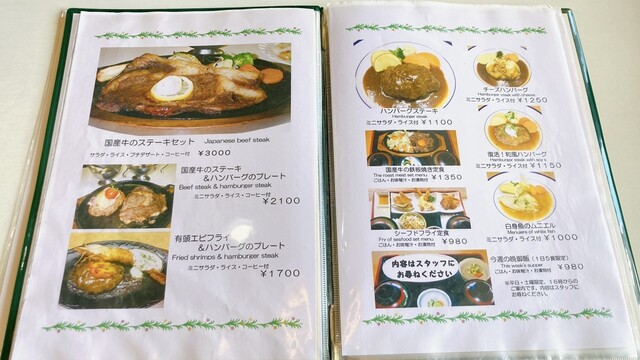 国産牛のステーキセット Japanese beef steak
サラダ・ライス・プチデザート・コーヒー付 ¥3000
国産牛のステーキ
&ハンバーグのプレート
Beef steak & hamburger steak
ミニサラダ・ライス・コーヒー付
¥2100
有頭エビフライ
&ハンバーグのプレート
Fried shrimps & hamburger steak
ミニサラダ・ライス・コーヒー付
¥1700
ハンバーグステーキ
Hamburger steak
ミニサラダ・ライス付 ¥1100
国産牛の鉄板焼き定食
The roast meat set menu
ごはん・お味噌汁・お漬物付 ¥1350
シーフドフライ定食
Fry of seafood set menu
ごはん・お味噌汁・お漬物付 ¥980
内容はスタッフに
お尋ねください
チーズハンバーグ
Hamburger steak with cheese
ミニサラダ・ライス付 ¥1250
復活!和風ハンバーグ
Hamburger steak with soy s
ミニサラダ・ライス付 ¥1150
白身魚のムニエル
Meruniere of white fish
ミニサラダ・ライス付 ¥1000
今週の晩御飯(1日5食限定)
This week's supper
ごはん・お味噌汁・お漬物付 ¥980
※平日・土曜限定、16時からの
ご案内です。内容はスタッフに
お尋ねください。